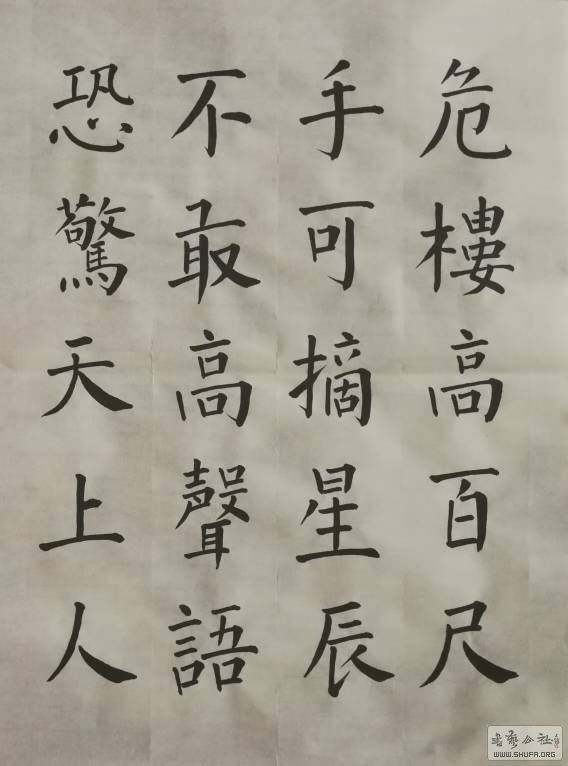 危樓高百尺
手可摘星辰
不敢高聲語
恐驚天上人
WWW.SHUFA.ORG